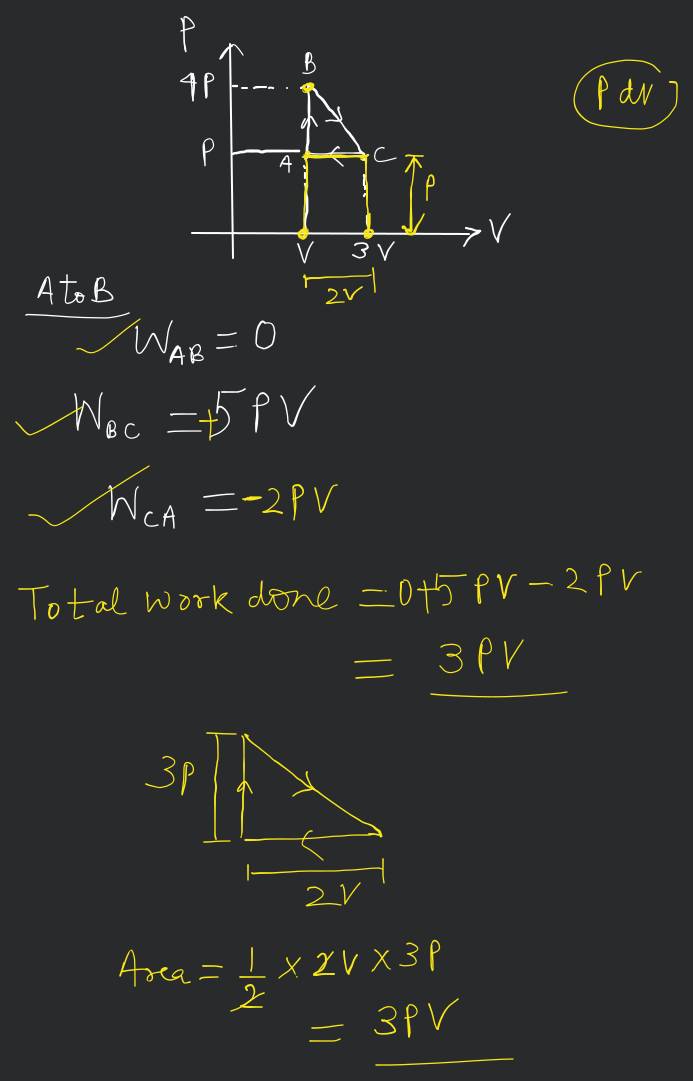 P
B
4P
P dV
P
A
C
P
V
3V
V
2V
A to B
W_AB = 0
W_BC = +5PV
W_CA = -2PV
Total work done = 0+5PV - 2PV
= 3PV
3P
2V
Area = 1/2 × 2V × 3P
= 3PV